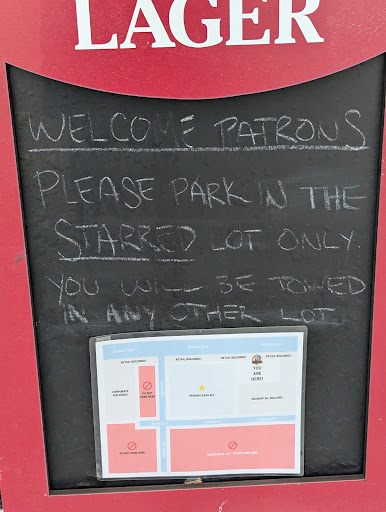 LAGER
WELCOME PATRONS
PLEASE PARK IN THE
STARRED LOT ONLY.
YOU WILL BE TOWED
IN ANY OTHER LOT
RETAIL BUILDINGS
RETAIL BUILDINGS
RETAIL BUILDINGS
YOU
ARE
HERE!
CORPORATE
BUILDINGS
DO NOT
PARK HERE
DO NOT PARK HERE